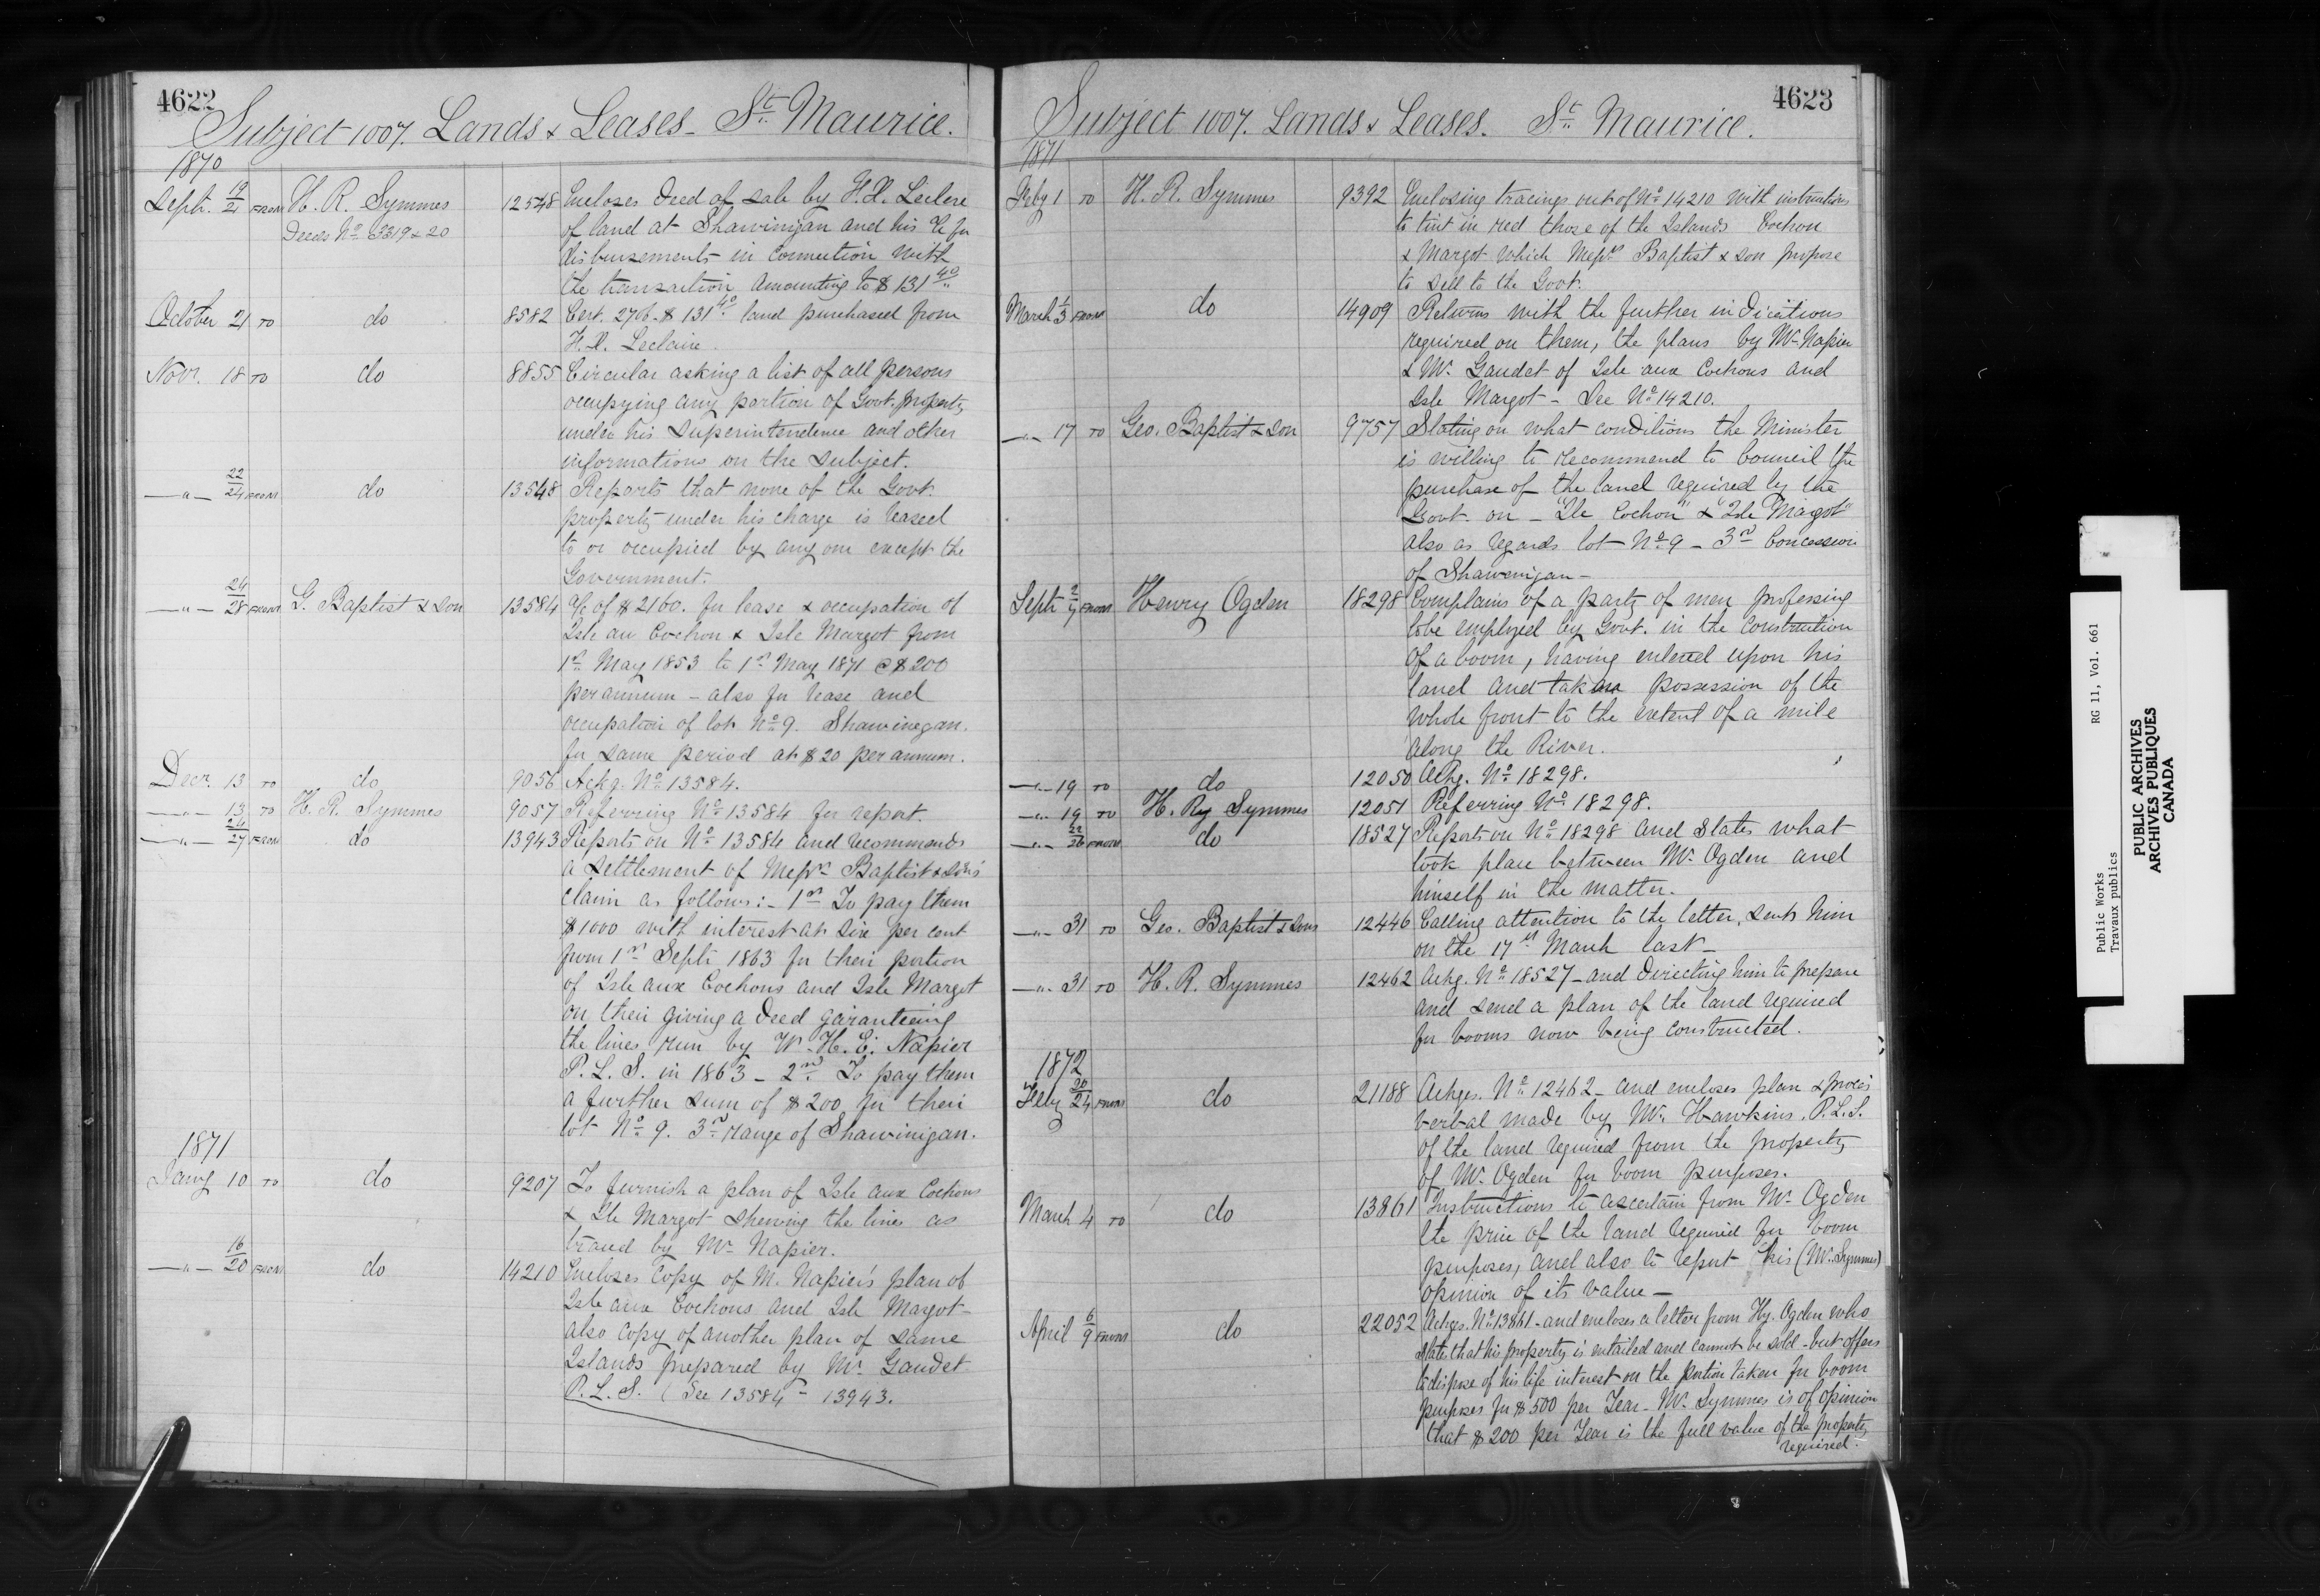 4622
Subject 1007. Lands & Leases - St. Maurice.
1870
Sept. 19/21 FROM H. R. Symmes 12548 Encloses Deed of sale by H. X. Leclere
Deeds No. 3319 & 20 of land at Shawinigan and his a/c for
disbursements in connection with
the transaction amounting to $ 131 40
October 21 TO do 8582 Cert. 2706 - $ 131 40 land purchased from
H. X. Leclaire.
Novr. 18 TO do 8855 Circular asking a list of all persons
occupying any portion of Govt. property
under his Superintendence and other
informations on the subject.
—"— 22/24 FROM do 13548 Reports that none of the Govt.
property under his charge is leased
to or occupied by any one except the
Government.
—"— 24/28 FROM G. Baptist & Son 13584 a/c of $2160. for lease & occupation of
Isle au Cochon & Isle Margot from
1st May 1853 to 1st May 1871 @ $200
per annum - also for lease and
occupation of lot No. 9. Shawinegan.
for same period at $20 per annum.
Decr. 13 TO do 9056 Ackg. No. 13584.
—"— 13 TO H. R. Symmes 9057 Referring No. 13584 for report.
—"— 24/27 FROM do 13943 Reports on No. 13584 and recommends
a settlement of Messrs. Baptist & Son's
claim as follows:- 1st To pay them
$1000 with interest at six per cent
from 1st Septr 1863 for their portion
of Isle aux Cochons and Isle Margot
on their giving a Deed garanteeing
the lines run by W. H. E. Napier
P. L. S. in 1863 - 2nd. To pay them
a further sum of $200 for their
lot No. 9. 3rd range of Shawinigan.
1871
Jany 10 TO do 9207 To furnish a plan of Isle aux Cochons
& Ile Margot shewing the lines as
traced by Mr. Napier.
—"— 16/20 FROM do 14210 Encloses copy of M. Napier's plan of
Isle aux Cochons and Isle Margot -
also copy of another plan of same
Islands prepared by Mr. Gaudet
P. L. S. (See 13584 - 13943.
4623
Subject 1007. Lands & Leases. St. Maurice.
1871
Feby 1 TO H. R. Symmes 9392 Enclosing tracings out of No. 14210 with instructions
to tint in red those of the Islands Cochon
& Margot which Messrs. Baptist & Son propose
to sell to the Govt.
March 1/3 FROM do 14909 Returns with the further indications
required on them, the plans by Mr. Napier
& Mr. Gaudet of Isle aux Cochons and
Isle Margot - See No. 14210.
—"— 17 TO Geo. Baptist & Son 9757 Stating on what conditions the Minister
is willing to recommend to Council the
purchase of the land required by the
Govt. on - "Ile Cochon" & "Isle Margot"
also as regards lot No. 9 - 3rd Concession
of Shawenigan -
Septr 2/7 FROM Henry Ogden 18298 Complains of a party of men professing
to be employed by Govt. in the construction
of a boom, having entered upon his
land and taken possession of the
whole front to the extent of a mile
along the River.
—"— 19 TO do 12050 Ackg. No. 18298.
—"— 19 TO H. Ry Symmes 12051 Referring No. 18298.
—"— 22/26 FROM do 18527 Reports on No. 18298 and States what
took place between Mr. Ogden and
himself in the matter.
—"— 31 TO Geo. Baptist & Sons 12446 Calling attention to the letter, sent him
on the 17th March last -
—"— 31 TO H. R. Symmes 12462 Ackg. No. 18527 - and directing him to prepare
and send a plan of the land required
for booms now being constructed.
1872
Feby 20/24 FROM do 21188 Ackges. No. 12462 - and encloses plan & procès
verbal made by Mr. Hawkins. P.L.S.
of the land required from the property
of Mr. Ogden for boom purposes.
March 4 TO do 13861 Instructions to ascertain from Mr. Ogden
the price of the land required for boom
purposes, and also to report his (Mr. Symmes)
opinion of its value -
April 6/9 FROM do 22052 Ackges. No. 13861 - and encloses a letter from Hy. Ogden who
state that his property is entailed and cannot be sold - but offers
to dispose of his life interest on the portion taken for boom
purposes for $500 per Year - Mr. Symmes is of opinion
that $200 per Year is the full value of the property
required.
Public Works RG 11, Vol. 661
Travaux publics
PUBLIC ARCHIVES
ARCHIVES PUBLIQUES
CANADA